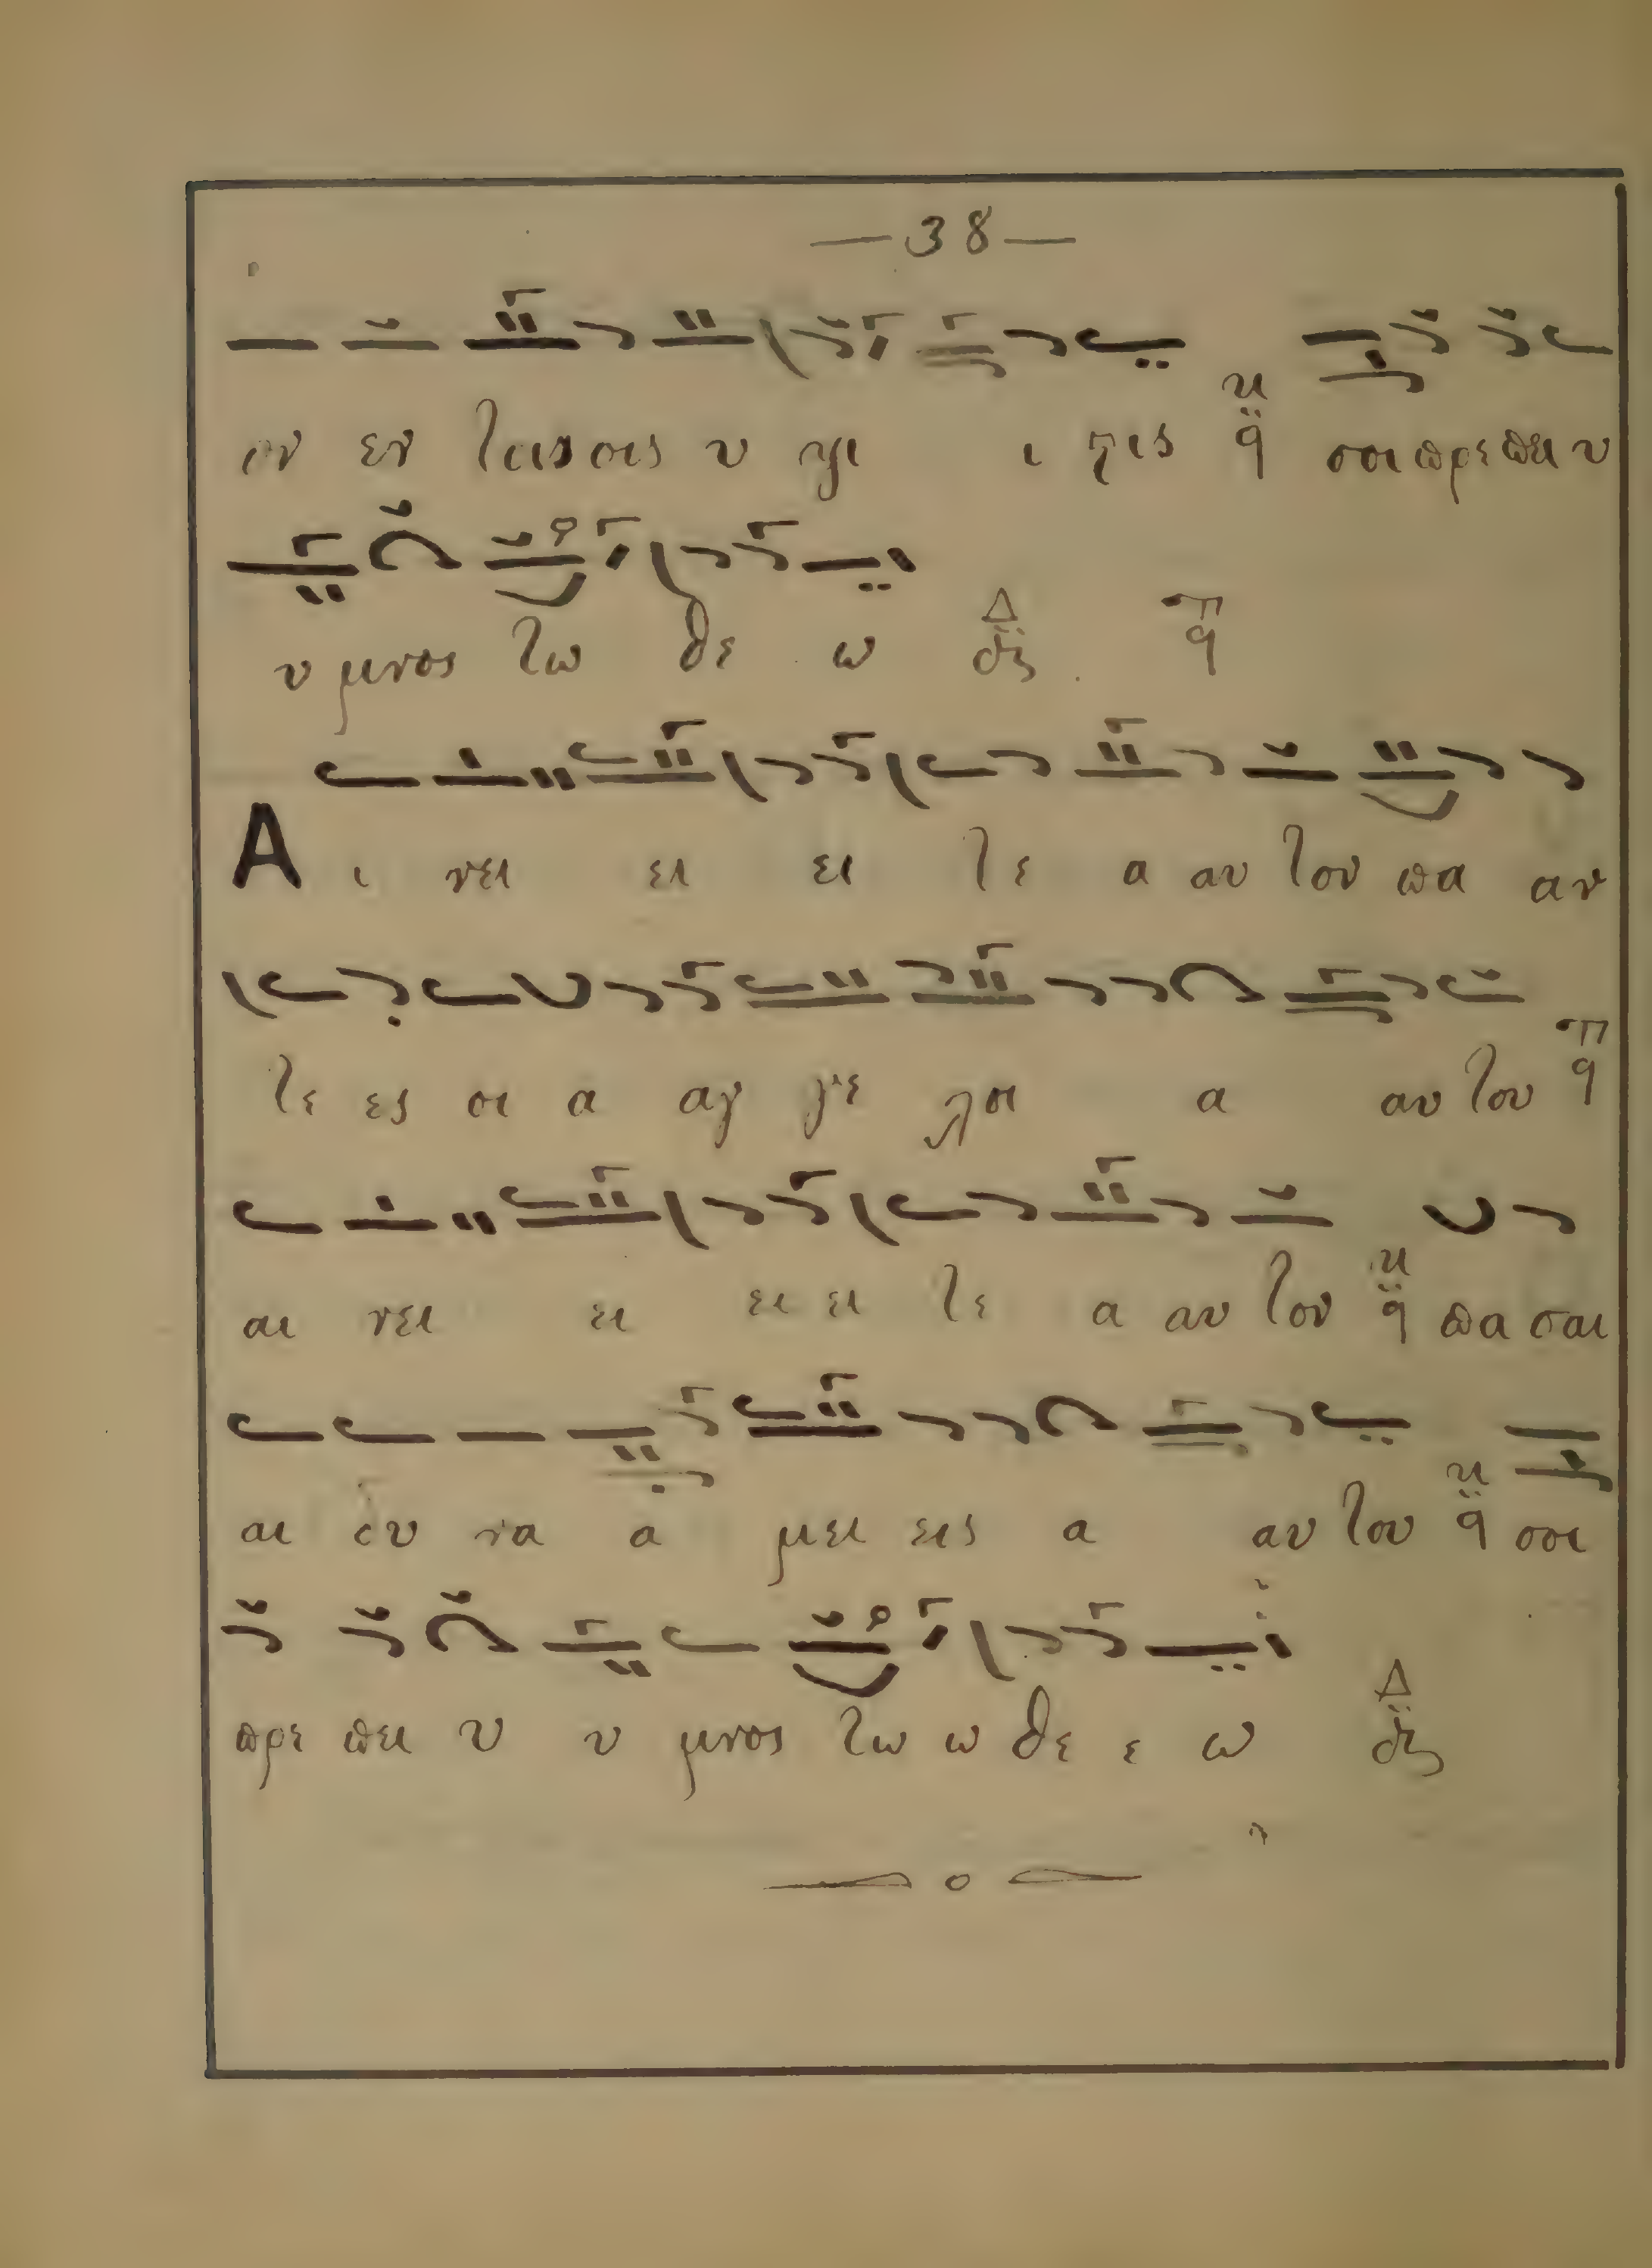 —38—
ον εν ταις οις υ ψι ι στις ϟ σοι πρε πει υ
υ μνος τω θε ω Δ ϟ
Α ι νει ει ει τε α αυ τον πα αν
τε ες οι α αγ γε λοι α αυ του π ϟ
αι νει ει ει ει τε α αυ τον ϟ πα σαι
αι δυ να α μει εις α αυ του ϟ σοι
πρε πει υ υ μνος τω ω θε ε ω Δ